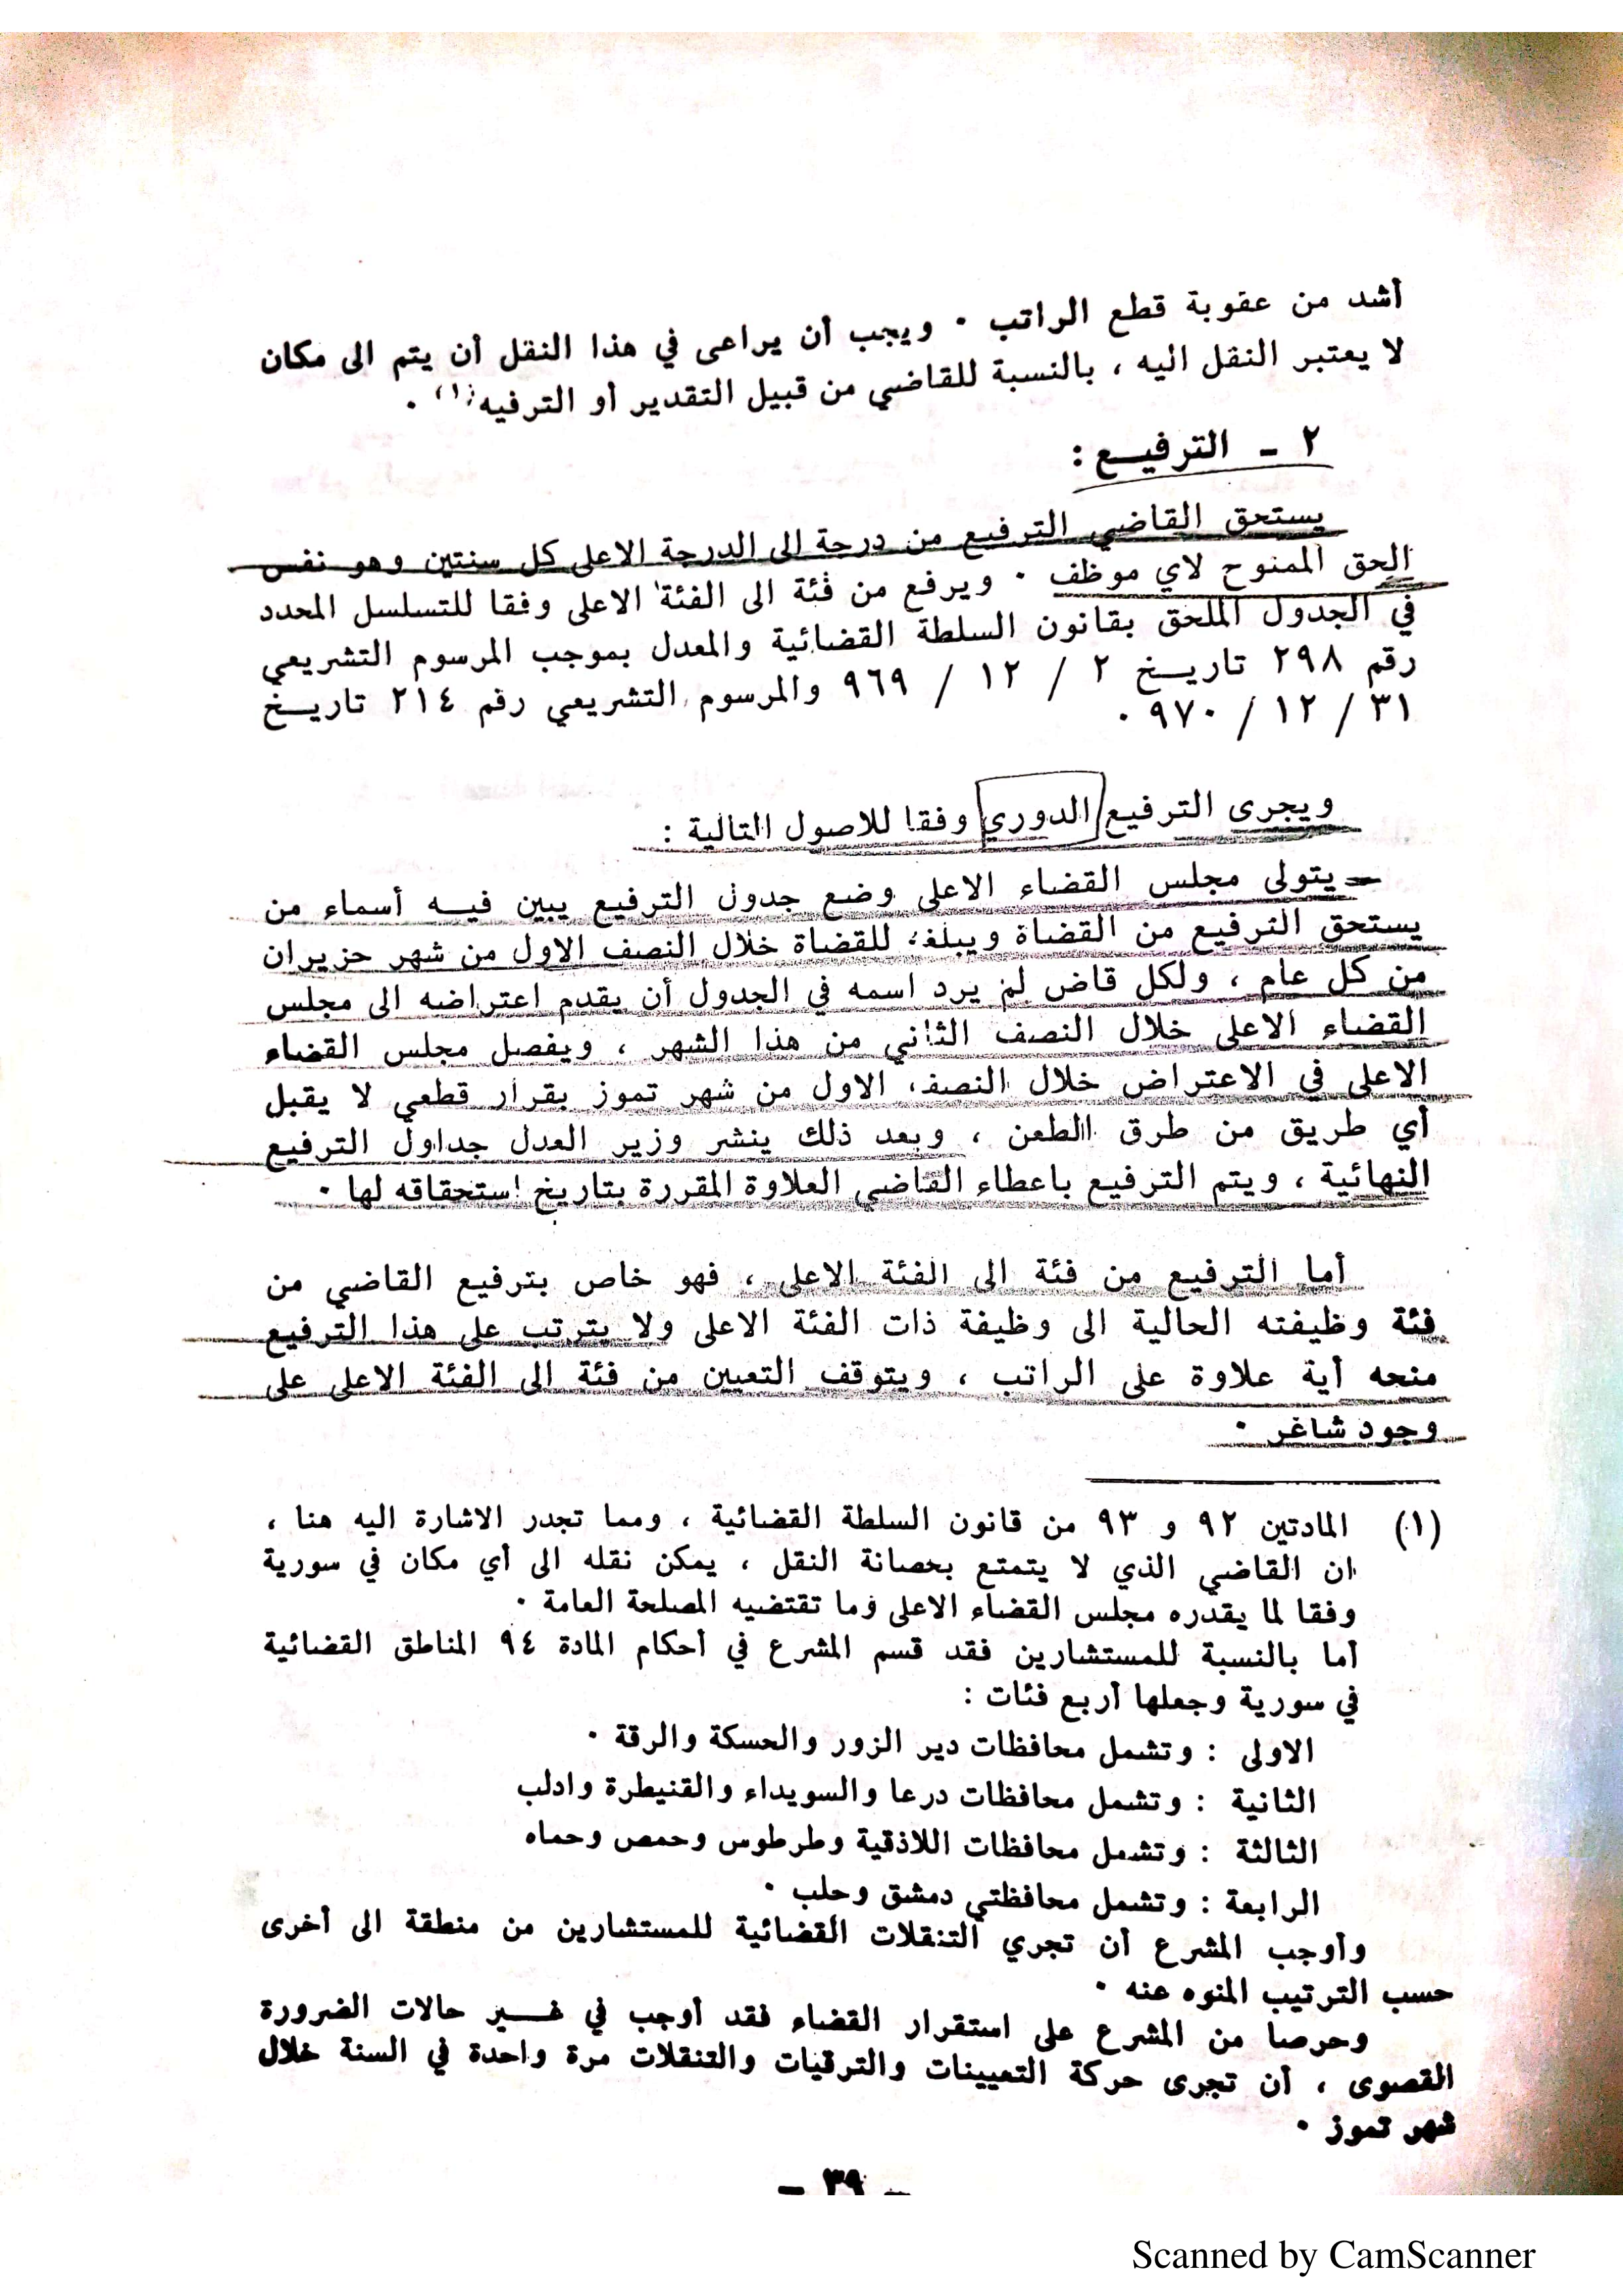 أشد من عقوبة قطع الراتب . ويجب أن يراعى في هذا النقل أن يتم الى مكان
لا يعتبر النقل اليه ، بالنسبة للقاضي من قبيل التقدير أو الترفيه(١) .
٢ - الترفيــع :
يستحق القاضي الترفيع من درجة الى الدرجة الاعلى كل سنتين وهو نفس
الحق الممنوح لاي موظف . ويرفع من فئة الى الفئة الاعلى وفقا للتسلسل المحدد
في الجدول الملحق بقانون السلطة القضائية والمعدل بموجب المرسوم التشريعي
رقم ٢٩٨ تاريــخ ٢ / ١٢ / ٩٦٩ والمرسوم التشريعي رقم ٢١٤ تاريــخ
٣١ / ١٢ / ٩٧٠ .
ويجرى الترفيع الدوري وفقا للاصول التالية :
يتولى مجلس القضاء الاعلى وضع جدول الترفيع يبين فيــه أسماء من
يستحق الترفيع من القضاة ويبلغ للقضاة خلال النصف الاول من شهر حزيران
من كل عام ، ولكل قاض لم يرد اسمه في الجدول أن يقدم اعتراضه الى مجلس
القضاء الاعلى خلال النصف الثاني من هذا الشهر ، ويفصل مجلس القضاء
الاعلى في الاعتراض خلال النصف الاول من شهر تموز بقرار قطعي لا يقبل
أي طريق من طرق الطعن ، وبعد ذلك ينشر وزير العدل جداول الترفيع
النهائية ، ويتم الترفيع باعطاء القاضي العلاوة المقررة بتاريخ استحقاقه لها .
أما الترفيع من فئة الى الفئة الاعلى ، فهو خاص بترفيع القاضي من
فئة وظيفته الحالية الى وظيفة ذات الفئة الاعلى ولا يترتب على هذا الترفيع
منحه أية علاوة على الراتب ، ويتوقف التعيين من فئة الى الفئة الاعلى على
وجود شاغر .
(١) المادتين ٩٢ و ٩٣ من قانون السلطة القضائية ، ومما تجدر الاشارة اليه هنا ،
ان القاضي الذي لا يتمتع بحصانة النقل ، يمكن نقله الى أي مكان في سورية
وفقا لما يقدره مجلس القضاء الاعلى وما تقتضيه المصلحة العامة .
أما بالنسبة للمستشارين فقد قسم المشرع في أحكام المادة ٩٤ المناطق القضائية
في سورية وجعلها أربع فئات :
الاولى : وتشمل محافظات دير الزور والحسكة والرقة .
الثانية : وتشمل محافظات درعا والسويداء والقنيطرة وادلب
الثالثة : وتشمل محافظات اللاذقية وطرطوس وحمص وحماه
الرابعة : وتشمل محافظتي دمشق وحلب .
وأوجب المشرع أن تجري التنقلات القضائية للمستشارين من منطقة الى أخرى
حسب الترتيب المنوه عنه .
وحرصا من المشرع على استقرار القضاء فقد أوجب في غــير حالات الضرورة
القصوى ، أن تجرى حركة التعيينات والترقيات والتنقلات مرة واحدة في السنة خلال
شهر تموز .
- ٣٩ -
Scanned by CamScanner